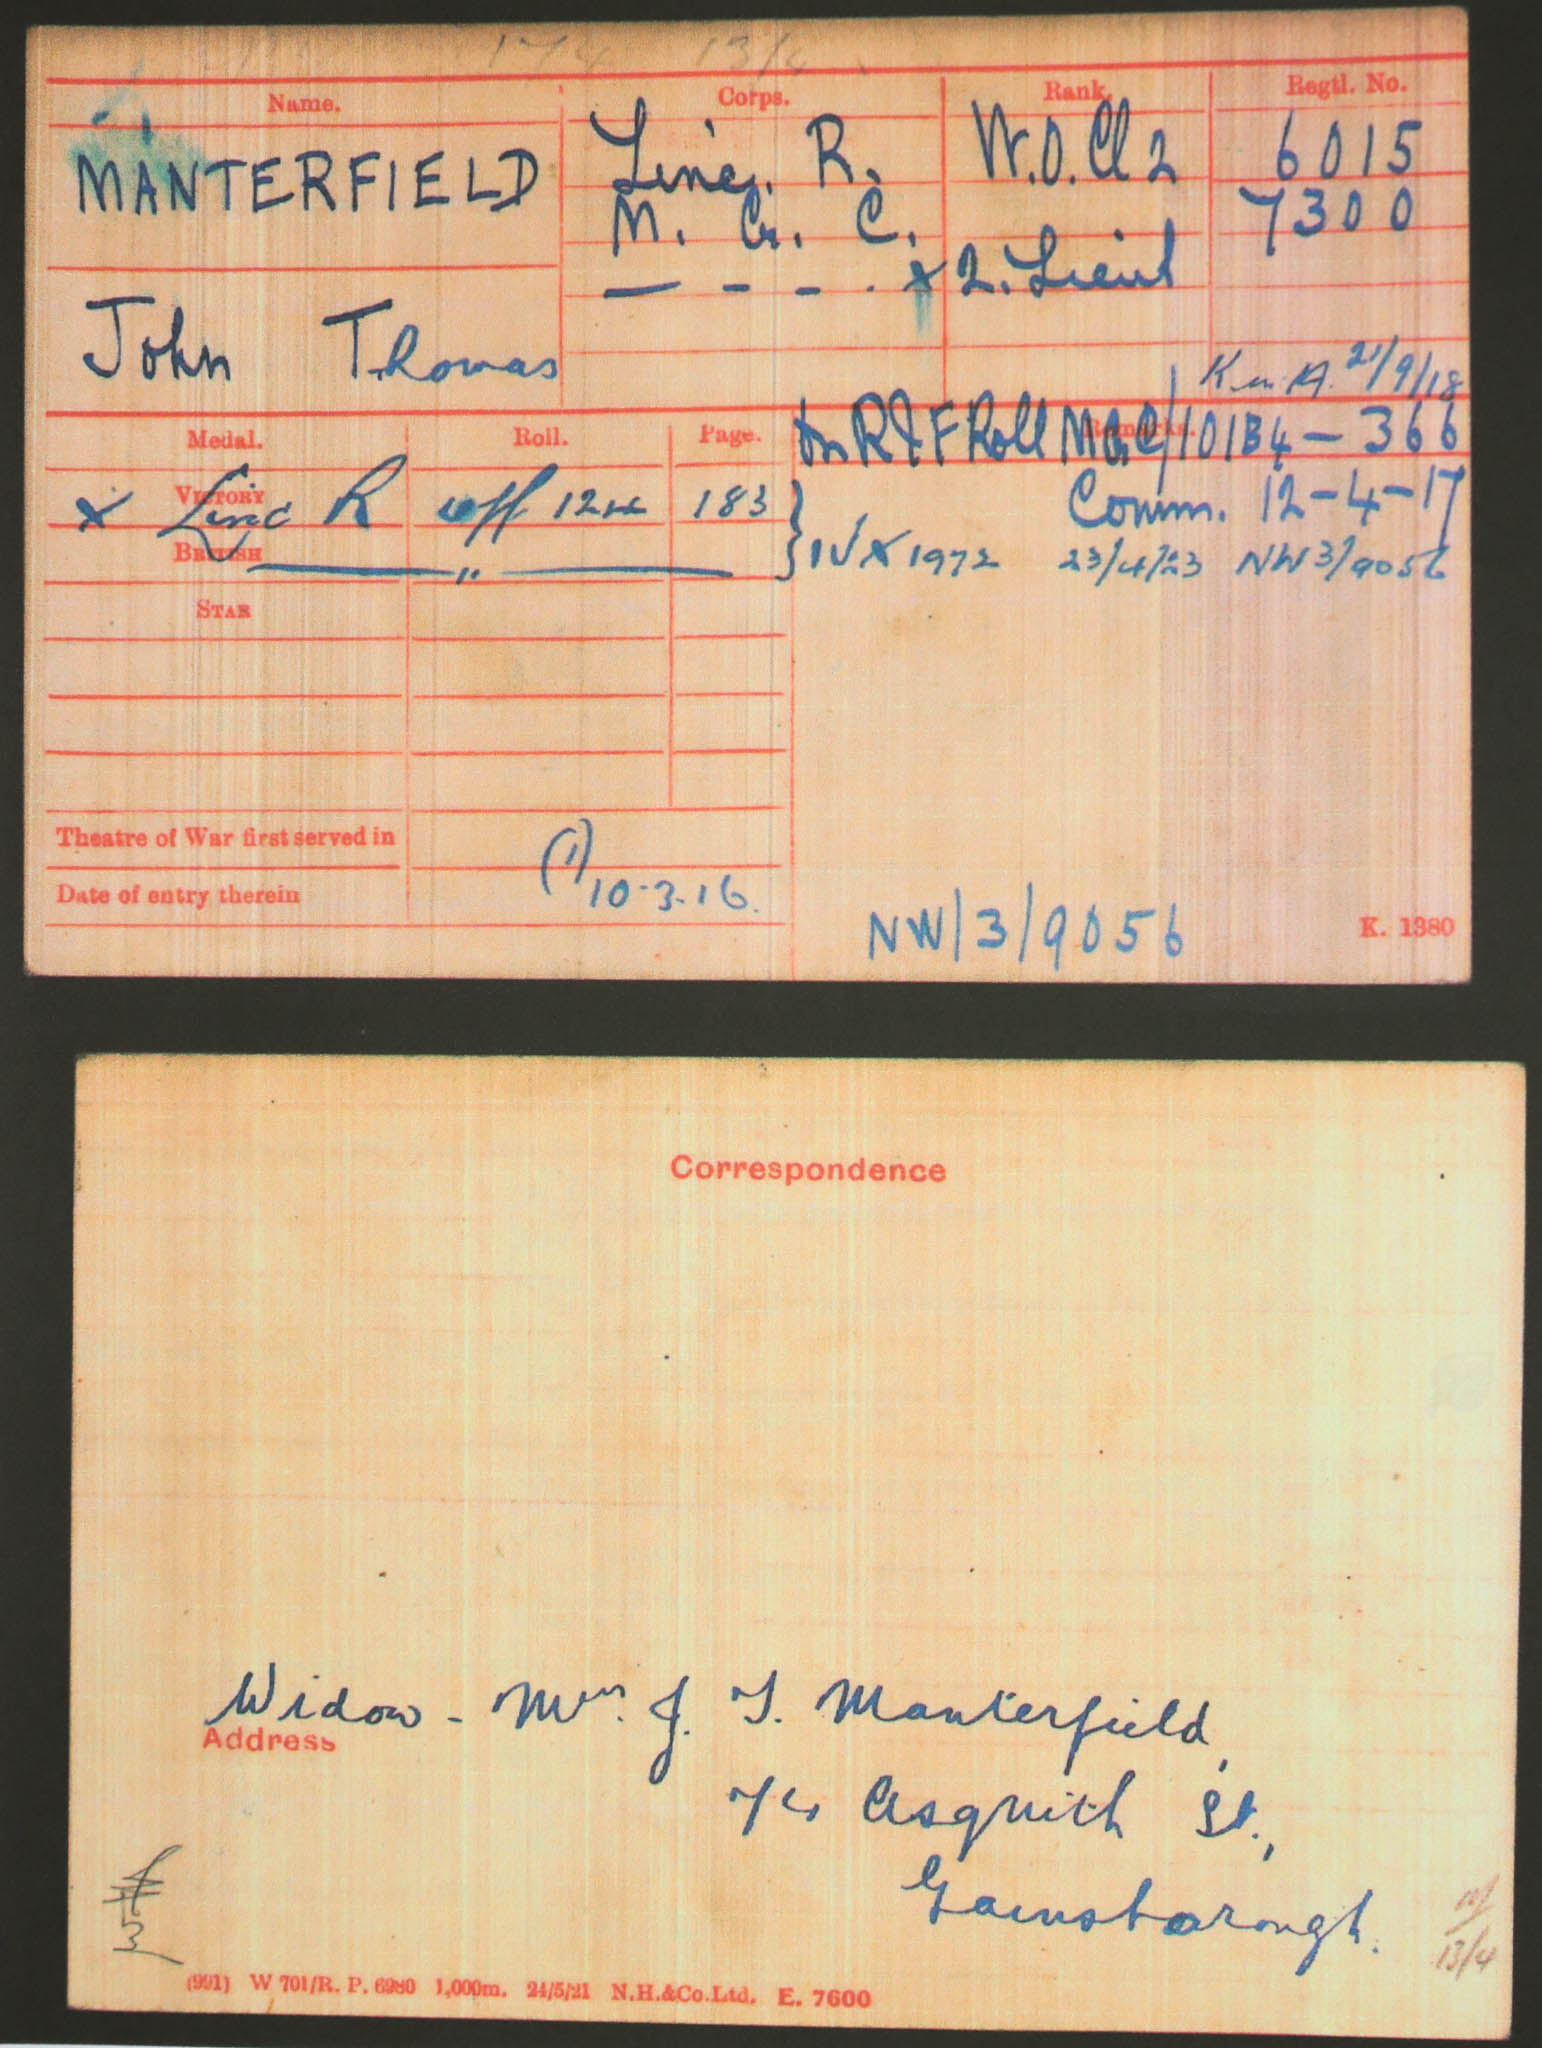 17/4 13/4
Name. Corps. Rank. Regtl. No.
MANTERFIELD Linc. R. W.O.Cl 2 6015
M. G. C. 7300
— - - - . x 2. Lieut
John Thomas
K in A. 21/9/18
Medal. Roll. Page. Remarks.
on R & F Roll MGC/101B4 - 366
VICTORY x Linc R off 124 183
Comm. 12-4-17
BRITISH — " —
IV x 1972 23/4/23 NW3/9056
STAR
Theatre of War first served in (1)
Date of entry therein 10-3-16.
NW/3/9056 K. 1380
Correspondence
Widow - Mrs. J. T. Manterfield,
Address
Asquith St.,
Gainsborough.
13/4
(991) W 701/R. P. 6980 1,000m. 24/5/21 N.H.&Co.Ltd. E. 7600